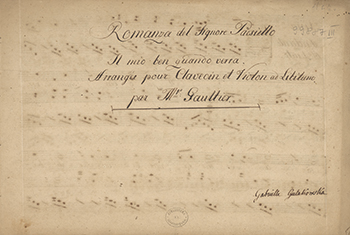 Romanza del Signore Paisiello
Il mio ben quando verra.
Arrangée pour Clavecin et Violon ad Libitum
par Mr. Gaultier.
Gabrielle